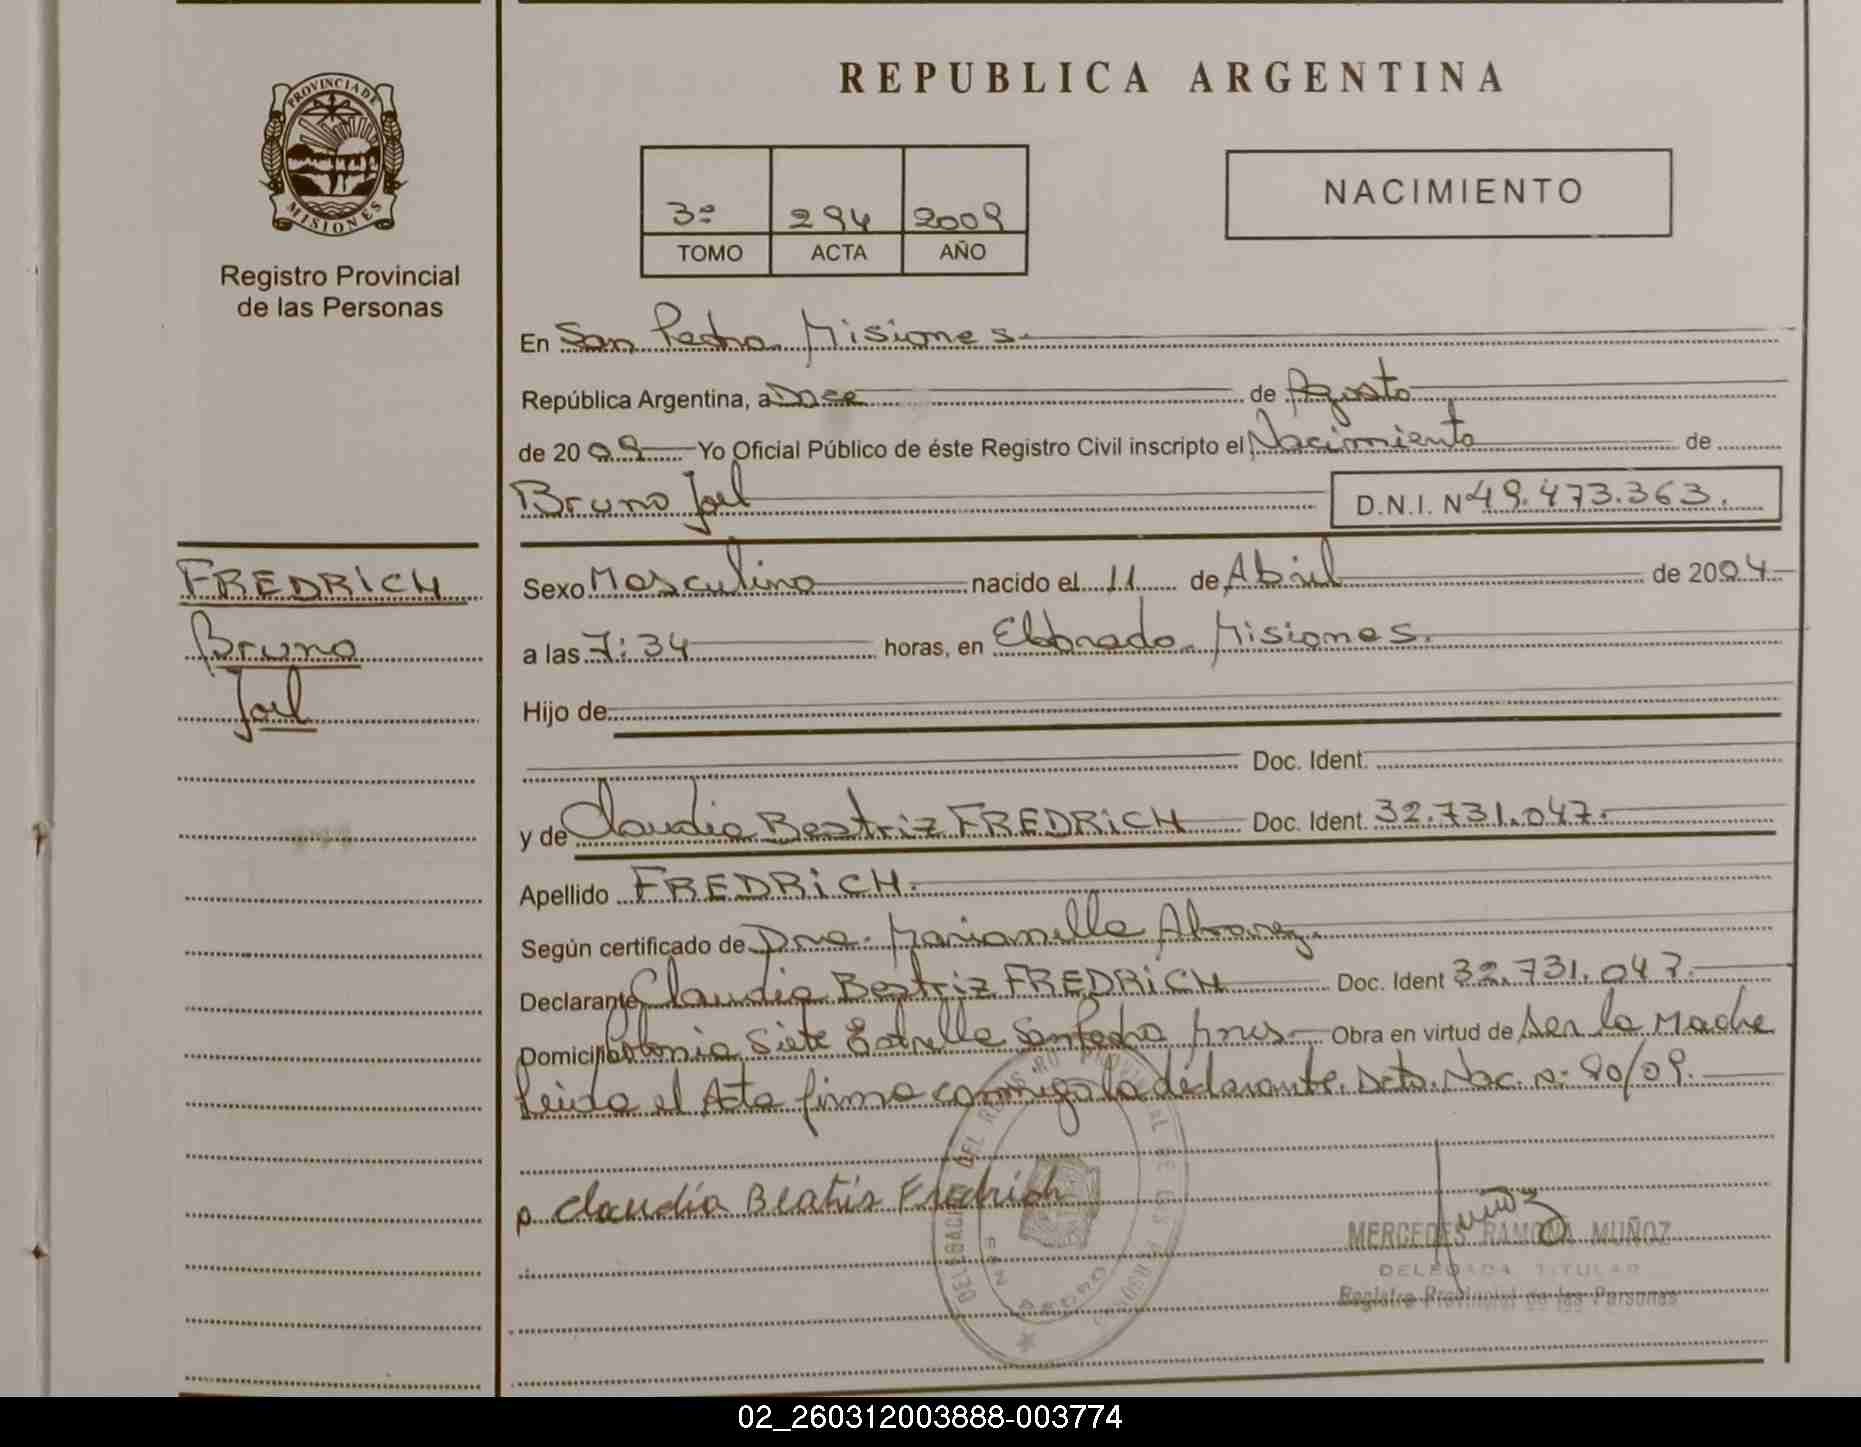 PROVINCIA DE
MISIONES
Registro Provincial
de las Personas
REPUBLICA ARGENTINA
3º 294 2009
TOMO ACTA AÑO
NACIMIENTO
En San Pedro Misiones
República Argentina, a Doce de Agosto
de 2009 Yo Oficial Público de éste Registro Civil inscripto el Nacimiento de
Bruno Joel D.N.I. Nº 49.473.363.
FREDRICH
Bruno
Joel
Sexo Masculino nacido el 11 de Abril de 2004
a las 7:34 horas, en Eldorado Misiones.
Hijo de
Doc. Ident.
y de Claudia Beatriz FREDRICH Doc. Ident. 32.731.047.
Apellido FREDRICH.
Según certificado de Dra. Marianella Alvarez.
Declarante Claudia Beatriz FREDRICH Doc. Ident 32.731.047.
Domicilio Colonia Siete Estrella San Pedro Mnes Obra en virtud de ser la Madre
Leída el Acta firma conmigo la declarante. Dcto. Nac. nº 90/09.
Claudia Beatris Fredrich
MERCEDES RAMONA MUÑOZ
DELEGADA TITULAR
Registro Provincial de las Personas
02_260312003888-003774